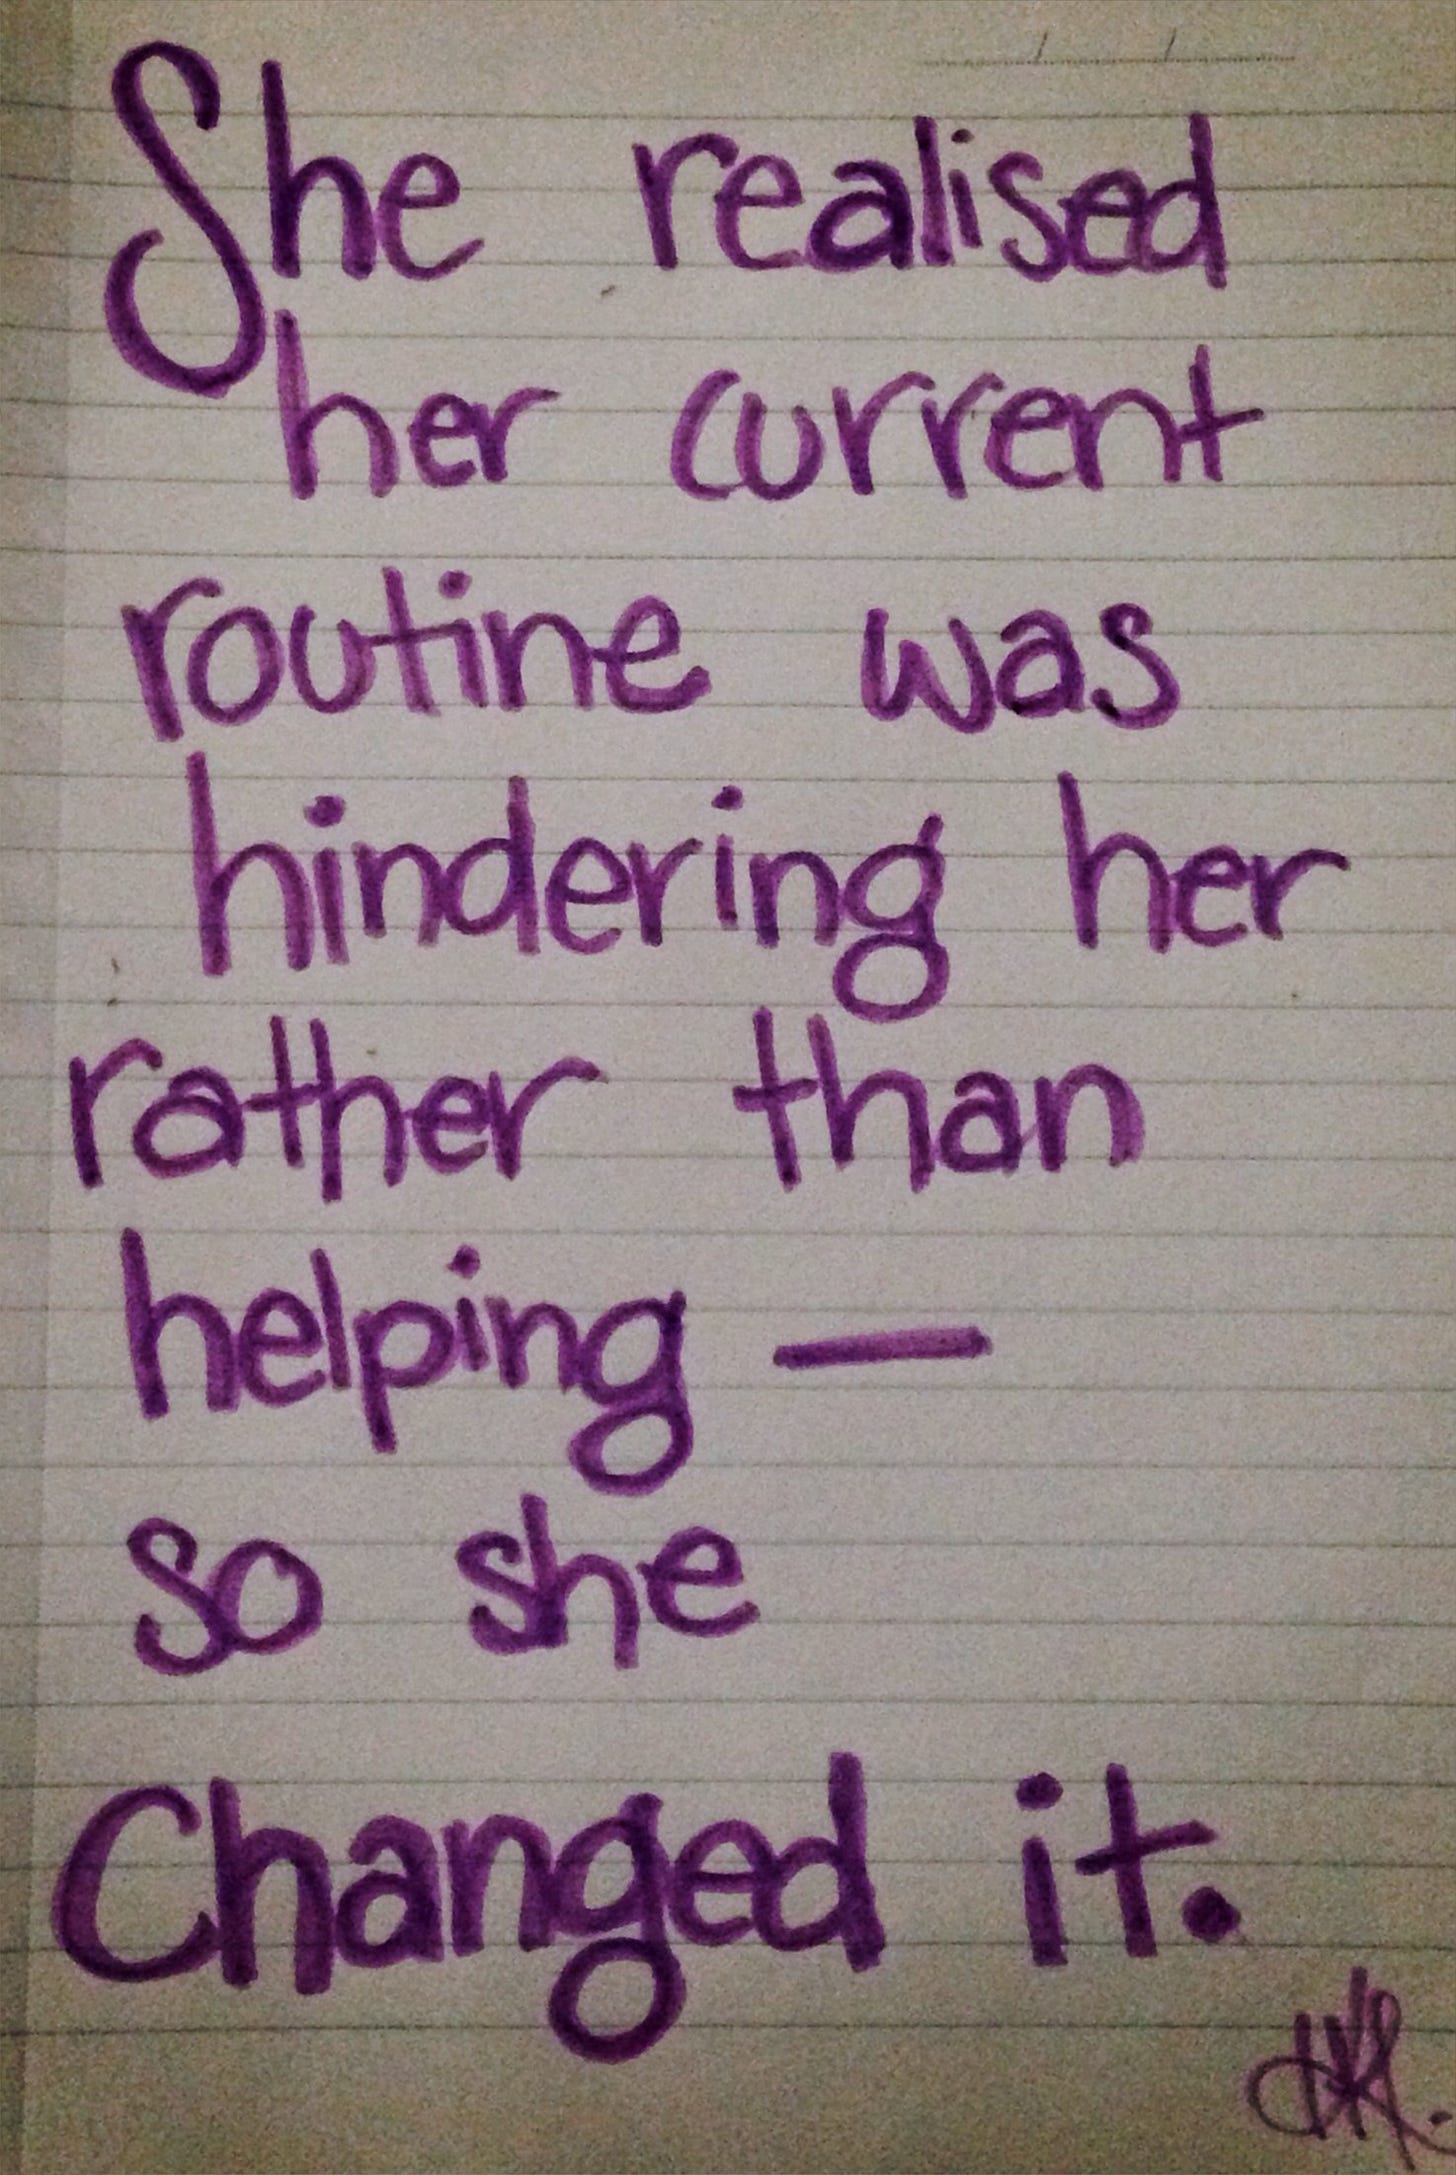 She realised
her current
routine was
hindering her
rather than
helping —
so she
Changed it.